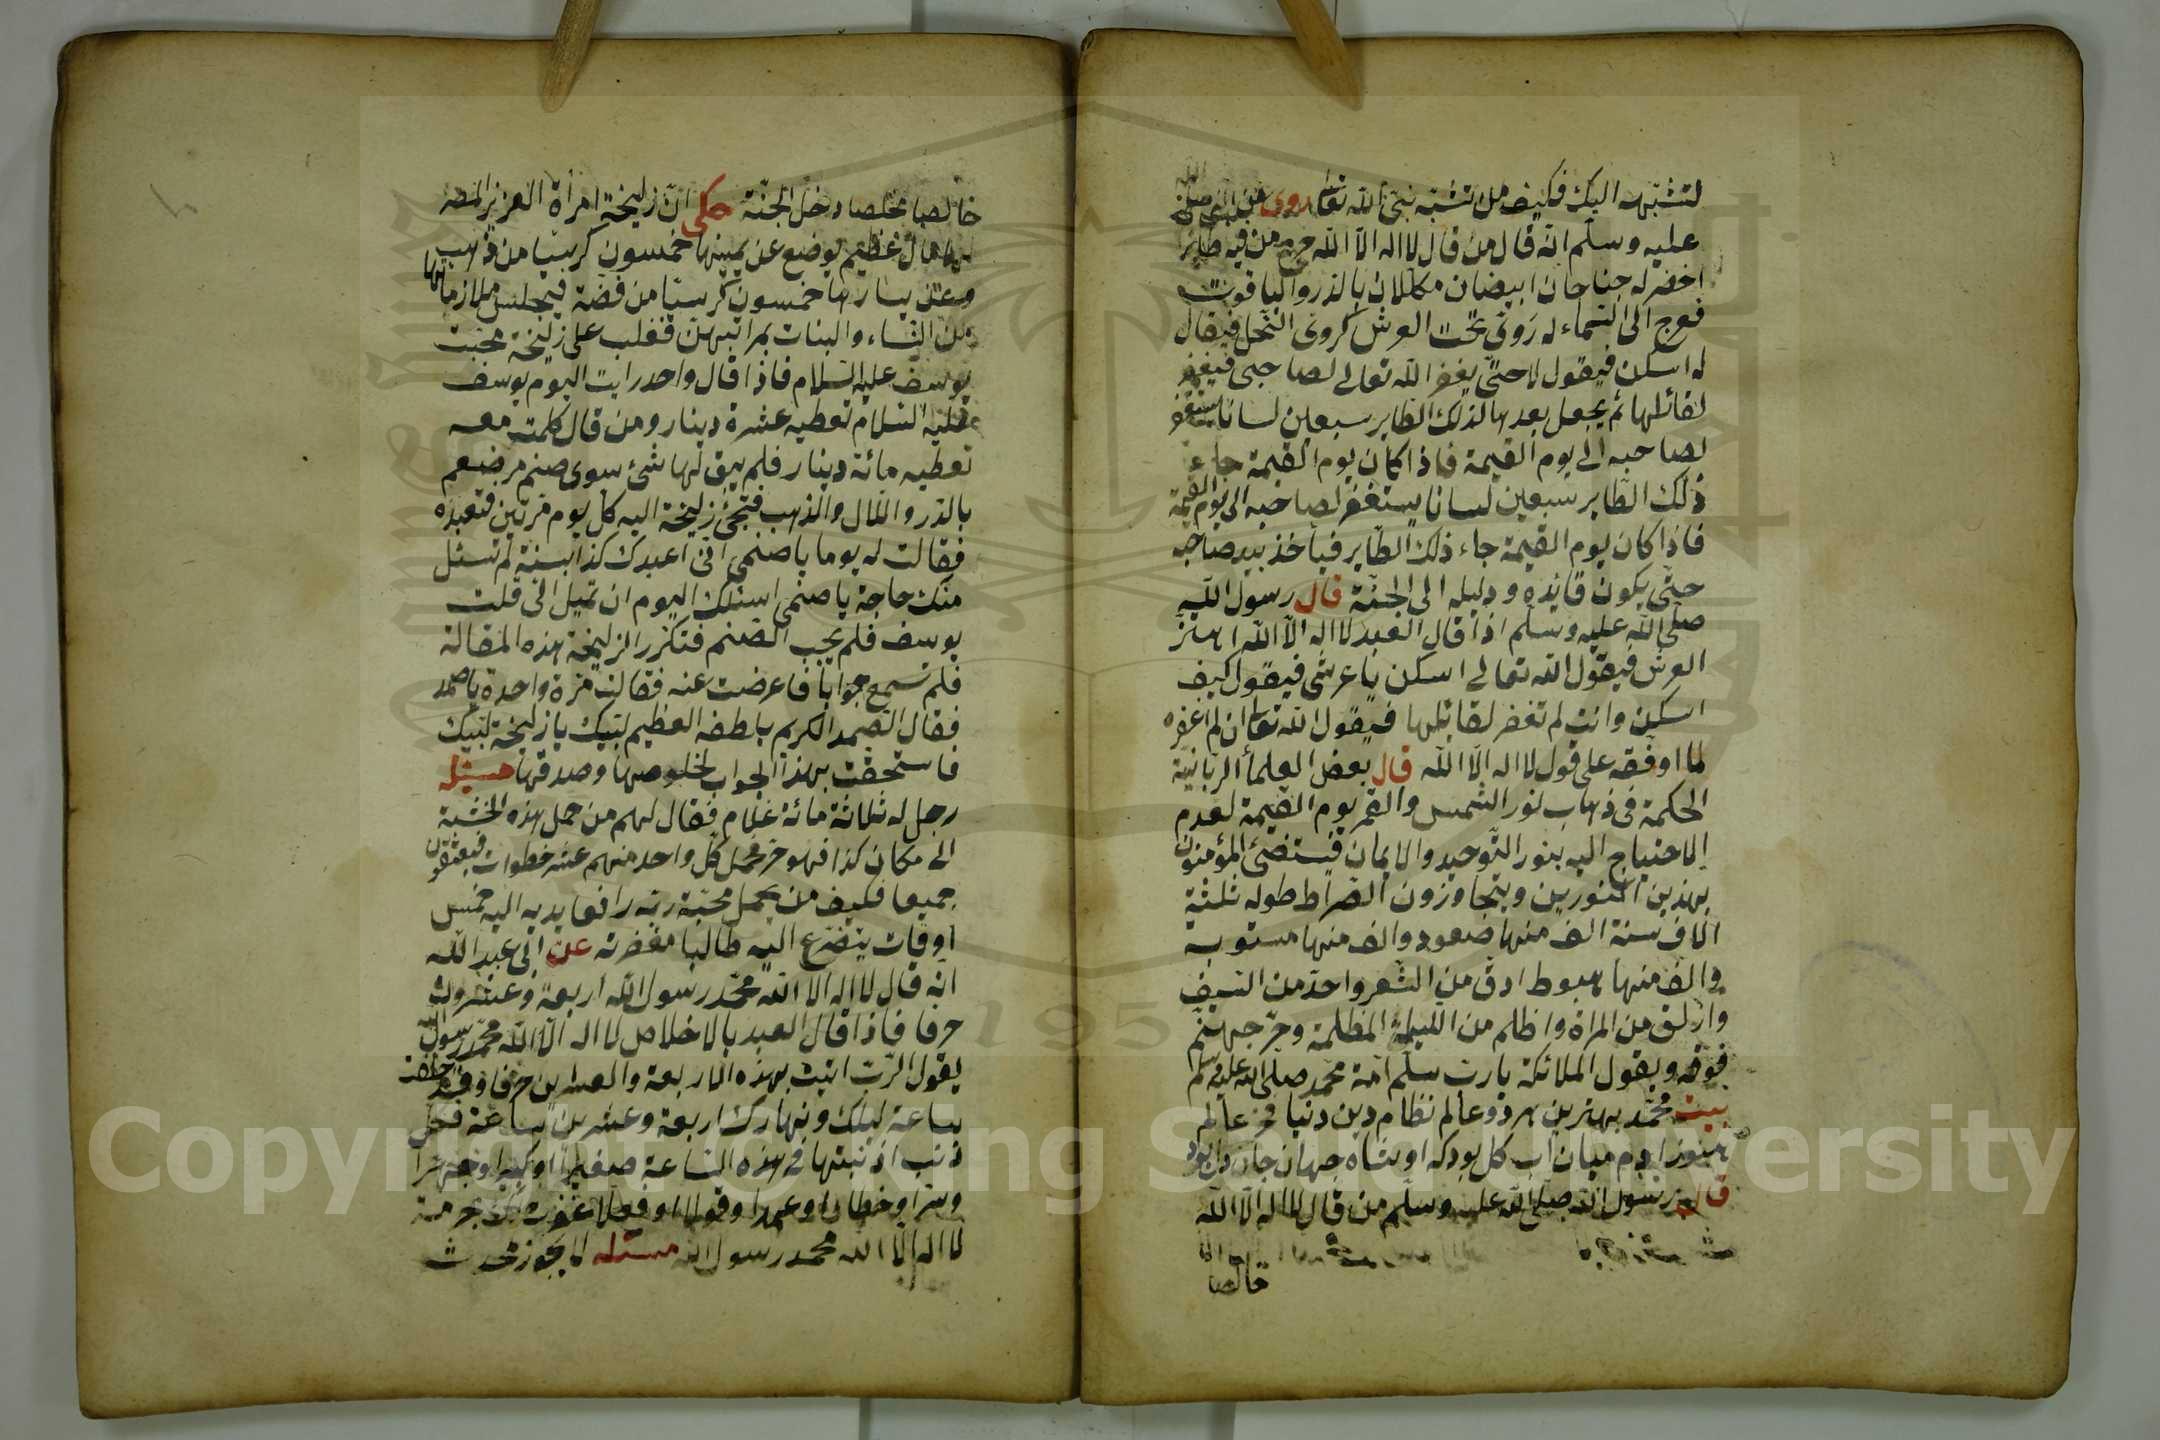 لتشبّهه اليك فكيف من تشبّه نبيّ الله تعا روى عن النبى صلى الله
عليه وسلّم انّه قال من قال لا اله الّا الله خرج من فيه طاير
اخضر له جناحان ابيضان مكللان بالدّر والياقوت
فعرج الى السّماء له دوىّ تحت العرش كدوى النّحل فيقال
له اسكن فيقول لا حتّى يغفر الله تعالى لصاحبى فيغفر
لقائلها ثم يجعل بعدها لذلك الطاير سبعين لسانا يستغفر
لصاحبه الى يوم القيمة فاذا كان يوم القيمة جاء
ذلك الطّاير سبعين لسانا يستغفر لصاحبه الى يوم القيمة
فاذا كان يوم القيمة جاء ذلك الطّاير فيأخذ بيد صاحبه
حتّى يكون قائده ودليله الى الجنّة قال رسول الله
صلّى الله عليه وسلّم اذا قال العبد لا اله الّا الله اهتزّ
العرش فيقول الله تعالى اسكن يا عرشى فيقول كيف
اسكن وانت لم تغفر لقائلها فيقول الله تعا ان لم اغفره
لما اوفقه على قول لا اله الّا الله قال بعض العلماء الربّانيّة
الحكمة فى ذهاب نور الشّمس والقمر يوم القيمة لعدم
الاحتياج اليه بنور التّوحيد والايمان فيستضئ المؤمنون
بهذين النّورين ويتجاوزون الصّراط طوله ثلثة
الاف سنة الف منها صعود والف منها مستوية
والف منها هبوط ادقّ من الشّعر واحدّ من السّيف
وازلق من المراة واظلم من اللّيلة المظلمة وحرّ جهنّم
فوقه ويقول الملائكة يا ربّ سلّم امّة محمّد صلّى الله عليه وسلم
بيت محمّد بهترين هر دو عالم نظام دين دنيا فخر عالم
هنوز ادم ميان اب كل بود كه او شاه جهان جان دل بود
قال رسول الله صلى الله عليه وسلّم من قال لا اله الّا الله
خالصا
خالصا مخلصا دخل الجنّة حكى انّ زليخة امرأة العزيز المصر
لها مال عظيم يوضع عن يمينها خمسون كرسيّا من ذهب
وعن يسارها خمسون كرسيّا من فضة فيجلس ملازماتها
من النّساء والبنات بمراتبهنّ فغلب على زليخة محبّت
يوسف عليه السّلام فاذا قال واحد رايت اليوم يوسف
عليه السّلام تعطيه عشرة دينار ومن قال كلمته معه
تعطيه مائة دينار فلم يبق لها شئ سوى صنم مرصّعم
بالدّر واللآل والذهب فتجئ زليخة اليه كل يوم مرّتين فتعبده
فقالت له يوما يا صنمى انى اعبدك كذا بسنة لم تسئل
منك حاجة يا صنمى اسئلك اليوم ان تميل الىّ قلت
يوسف فلم يجب الصّنم فتكرّر الزليخة هذه المقالة
فلم تسمع جوابا فاعرضت عنه فقالت مرّة واحدة يا صمد
فقال الصّمد الكريم بلطفه العظيم لبّيك يا زليخة لبّيك
فاستحقّت بهذا الجواب لخلوصها وصدقها مسئله
رجل له ثلاثة مائة غلام فقال لهم من حمل هذه الخشبة
الى مكان كذا فهو حرّ فحمل كل واحد منهم عشر خطوات فيعتقون
جميعا فكيف من يحمل محبّة ربّه رافعا يديه اليه خمس
اوقات يتضرّع اليه طالبا مغفرته عن ابى عبد الله
انّه قال لا اله الّا الله محمّد رسول الله اربعة وعشرون
حرفا فاذا قال العبد بالاخلاص لا اله الّا الله محمّد رسول الله
يقول الرّب اتيت بهذه الاربعة والعشرين حرفا وقد خلقت
ساعة ليلك ونهارك اربعة وعشرين ساعة فكل
ذنب اذنبتها فى هذه السّاعة صغيرا او كبيرا وجهرا
وسرّا وخطاء او عمدا وقولا او فعلا غفرت لك بحرمة
لا اله الّا الله محمد رسول الله مسئله لا يجوز محدث